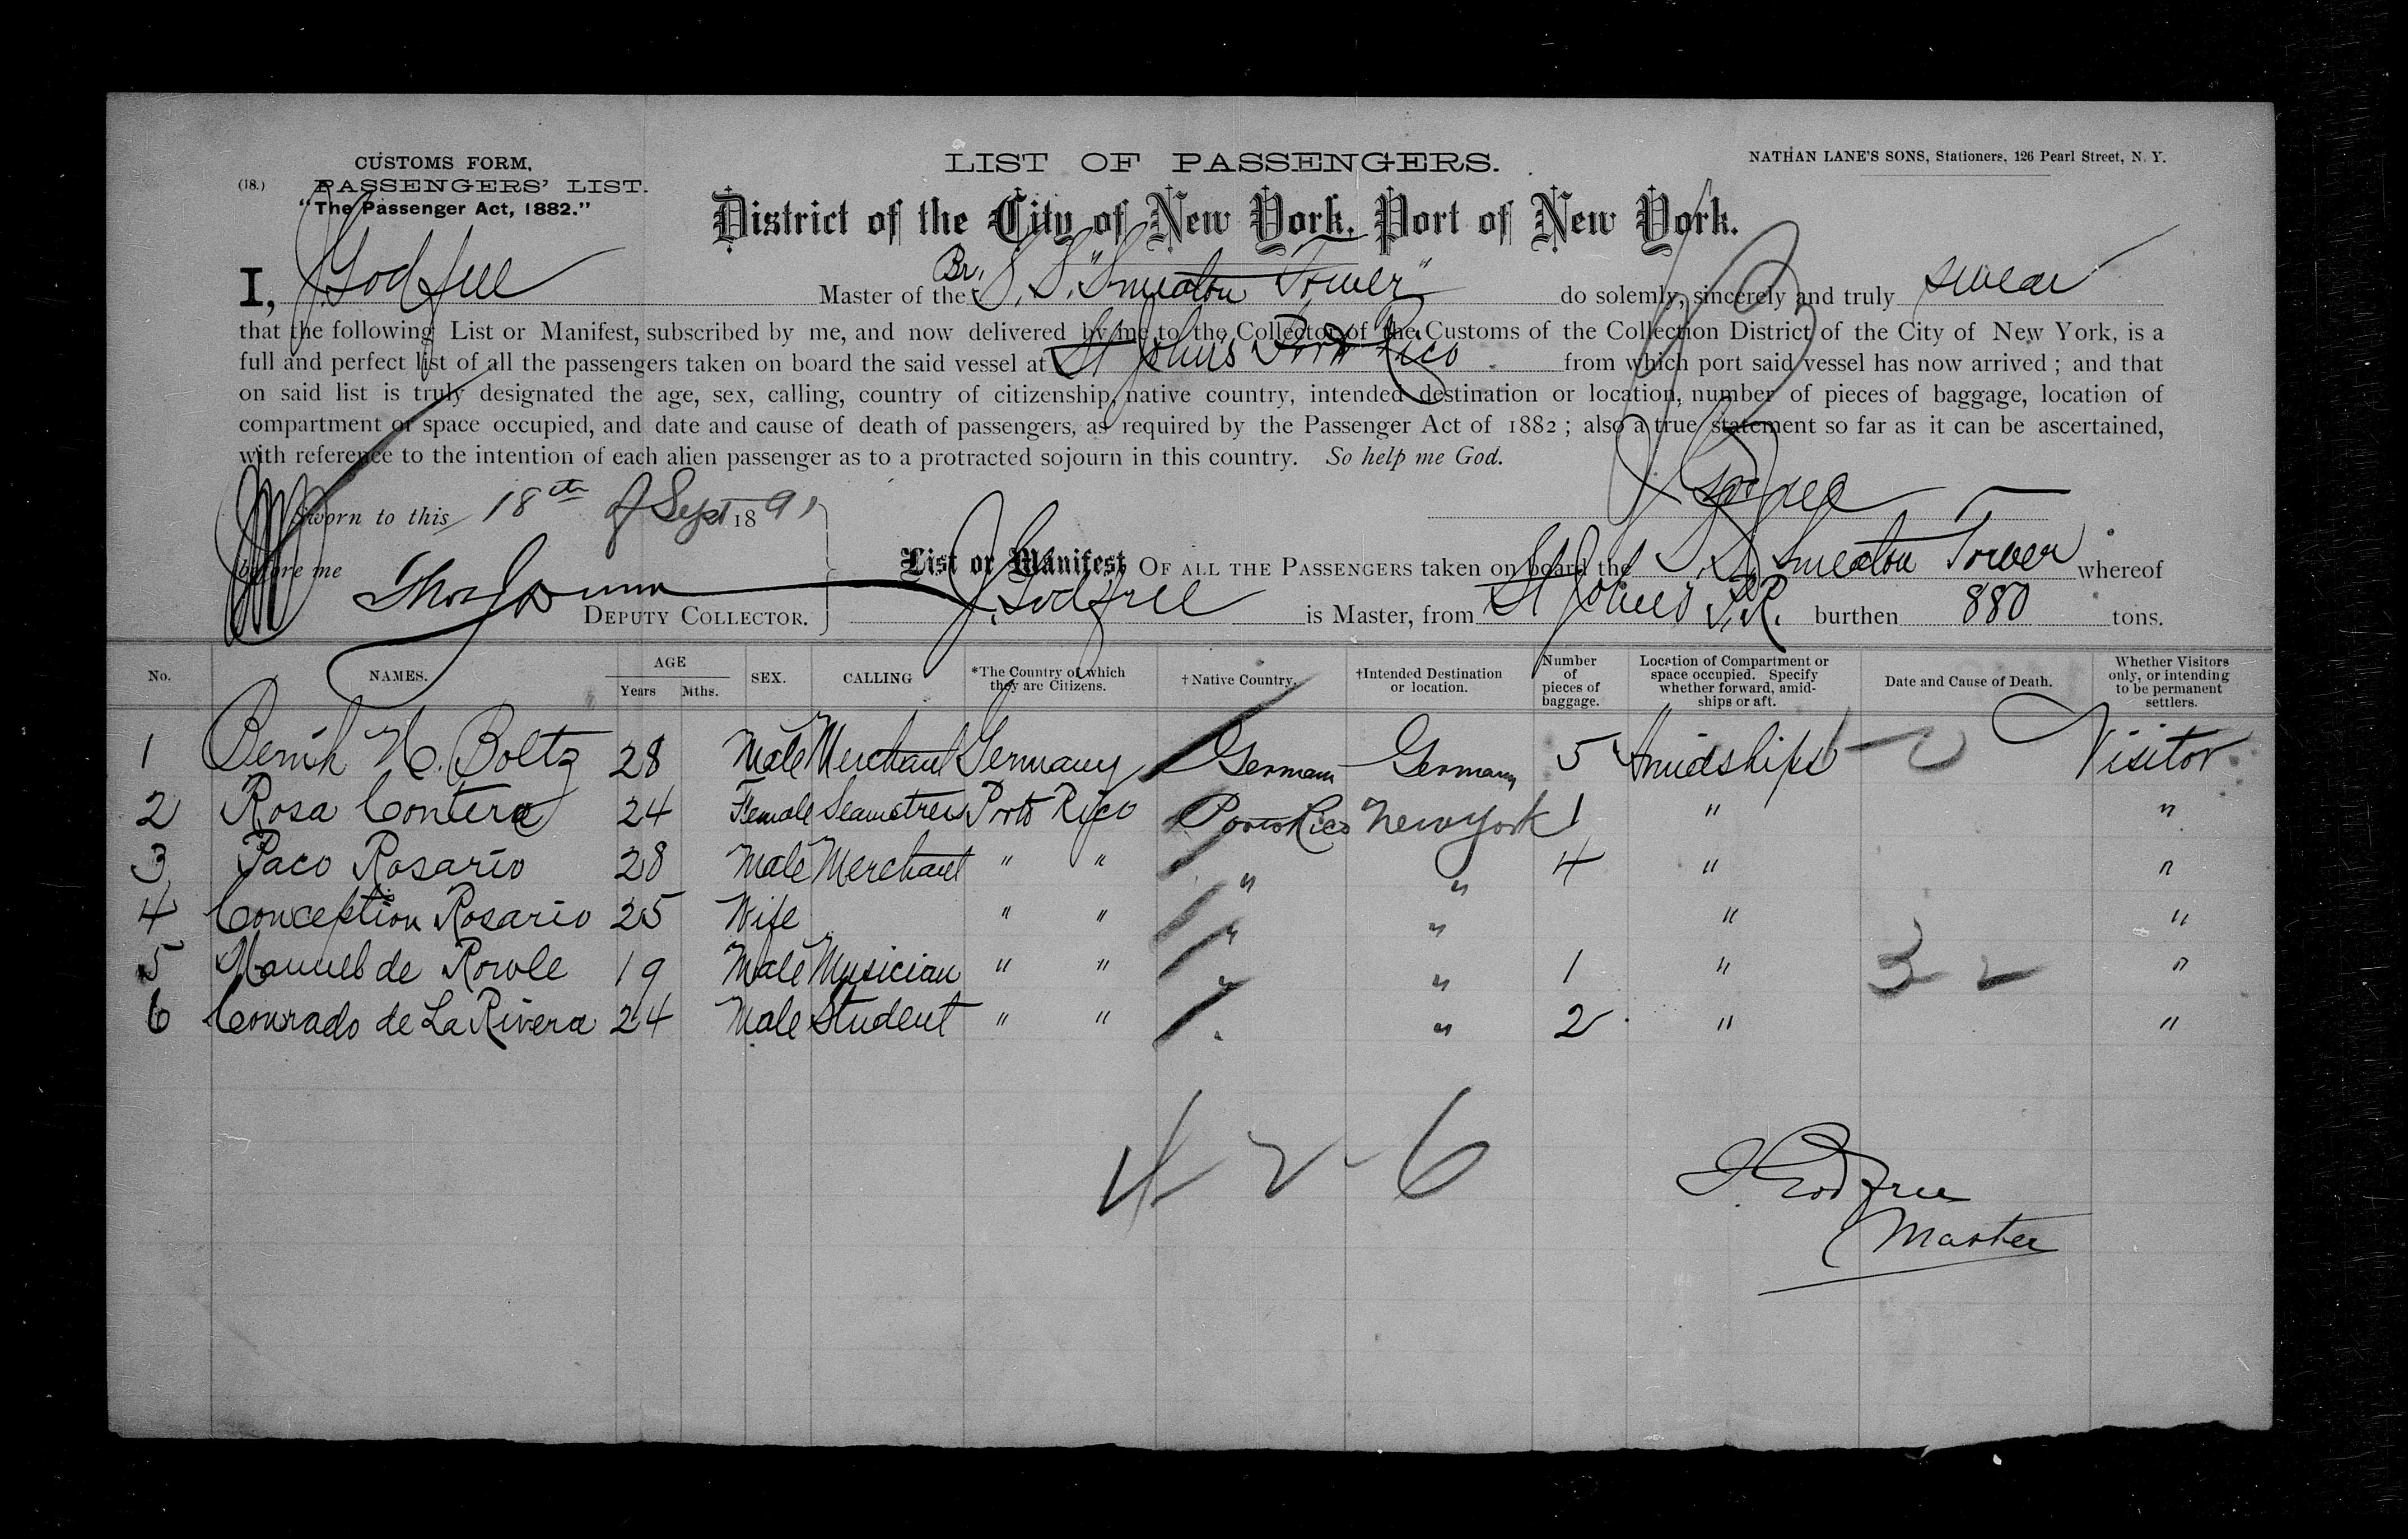 CUSTOMS FORM,
(18.) PASSENGERS' LIST.
"The Passenger Act, 1882."
LIST OF PASSENGERS.
NATHAN LANE'S SONS, Stationers, 126 Pearl Street, N. Y.
District of the City of New York, Port of New York.
I, J. Godfree Master of the Br. S. S. "Smeaton Tower" do solemly, sincerely and truly swear
that the following List or Manifest, subscribed by me, and now delivered by me to the Collector of the Customs of the Collection District of the City of New York, is a
full and perfect list of all the passengers taken on board the said vessel at St Johns Porto Rico from which port said vessel has now arrived ; and that
on said list is truly designated the age, sex, calling, country of citizenship, native country, intended destination or location, number of pieces of baggage, location of
compartment or space occupied, and date and cause of death of passengers, as required by the Passenger Act of 1882 ; also a true statement so far as it can be ascertained,
with reference to the intention of each alien passenger as to a protracted sojourn in this country. So help me God.
Sworn to this 18th of Sept 1891
J. Godfree
before me
DEPUTY COLLECTOR.
List or Manifest OF ALL THE PASSENGERS taken on board the S. S. Smeaton Tower whereof
J. Godfree is Master, from St Johns P.R. burthen 880 tons.
No. NAMES. AGE Years Mths. SEX. CALLING *The Country of which they are Citizens. †Native Country. †Intended Destination or location. Number of pieces of baggage. Location of Compartment or space occupied. Specify whether forward, amid-ships or aft. Date and Cause of Death. Whether Visitors only, or intending to be permanent settlers.
1 H. Boltz 28 Male Merchant Germany Germany Germany 5 Amidships Visitor
2 Rosa Contera 24 Female Seamstress Porto Rico Porto Rico New York 1 " "
3 Paco Rosario 28 Male Merchant " " " " 4 " "
4 Conception Rosario 25 Wife " " " " " "
5 Manuel de Rowle 19 Male Musician " " " " 1 " "
6 Conrado de La Rivera 24 Male Student " " " " 2 " "
3 2
4 2 - 6
J. Godfree
Master